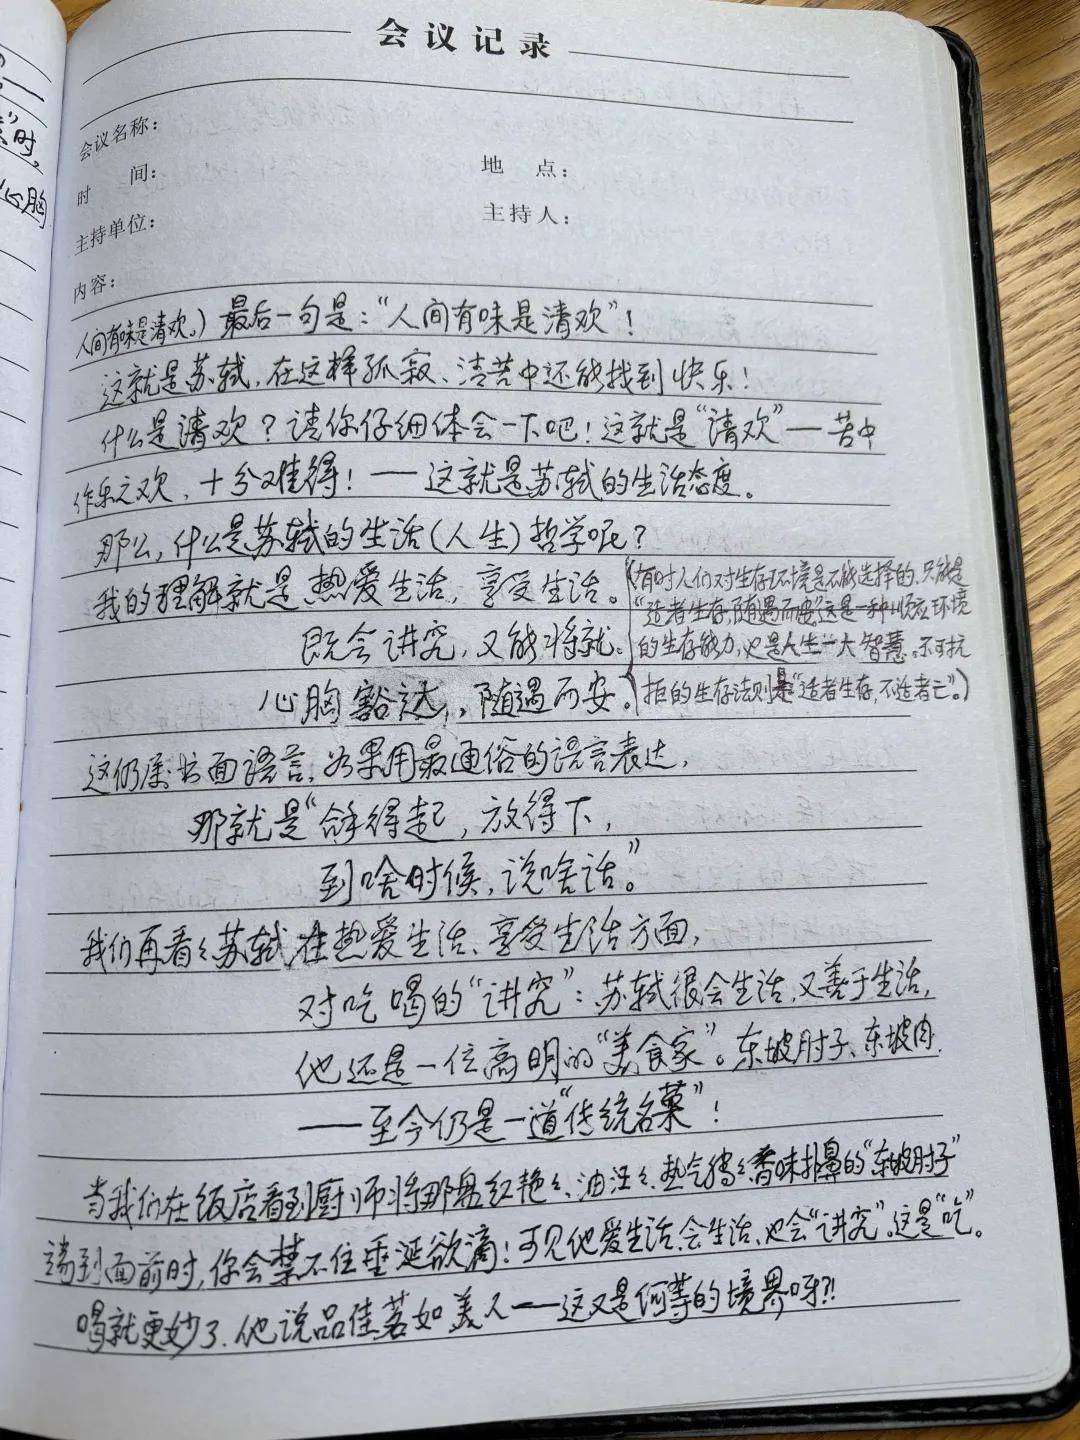 时,
心胸
会议记录
会议名称:
时 间:
地 点:
主持单位:
主持人:
内容:
人间有味是清欢。)最后一句是:“人间有味是清欢”!
这就是苏轼,在这样孤寂、清苦中还能找到快乐!
什么是清欢?请你仔细体会一下吧!这就是“清欢”—苦中
作乐之欢,十分难得!——这就是苏轼的生活态度。
那么,什么是苏轼的生活(人生)哲学呢?
我的理解就是热爱生活,享受生活。
既会讲究,又能将就。
心胸豁达,随遇而安。
(有时人们对生存环境是不能选择的,只能是
“适者生存,随遇而安”这是一种顺应环境
的生存能力,也是人生一大智慧。不可抗
拒的生存法则是“适者生存,不适者亡”。)
这仍属书面语言,如果用最通俗的语言表达,
那就是“拿得起,放得下,
到啥时候,说啥话”。
我们再看々苏轼在热爱生活、享受生活方面,
对吃喝的“讲究”:苏轼很会生活,又善于生活,
他还是一位高明的“美食家”。东坡肘子、东坡肉
——至今仍是一道“传统名菜”!
当我们在饭店看到厨师将那盘红艳々、油汪々、热气腾々香味扑鼻的“东坡肘子”
端到面前时,你会禁不住垂涎欲滴!可见他爱生活、会生活、也会“讲究”。这是“吃”。
喝就更妙了,他说品佳茗如美人——这又是何等的境界呀?!